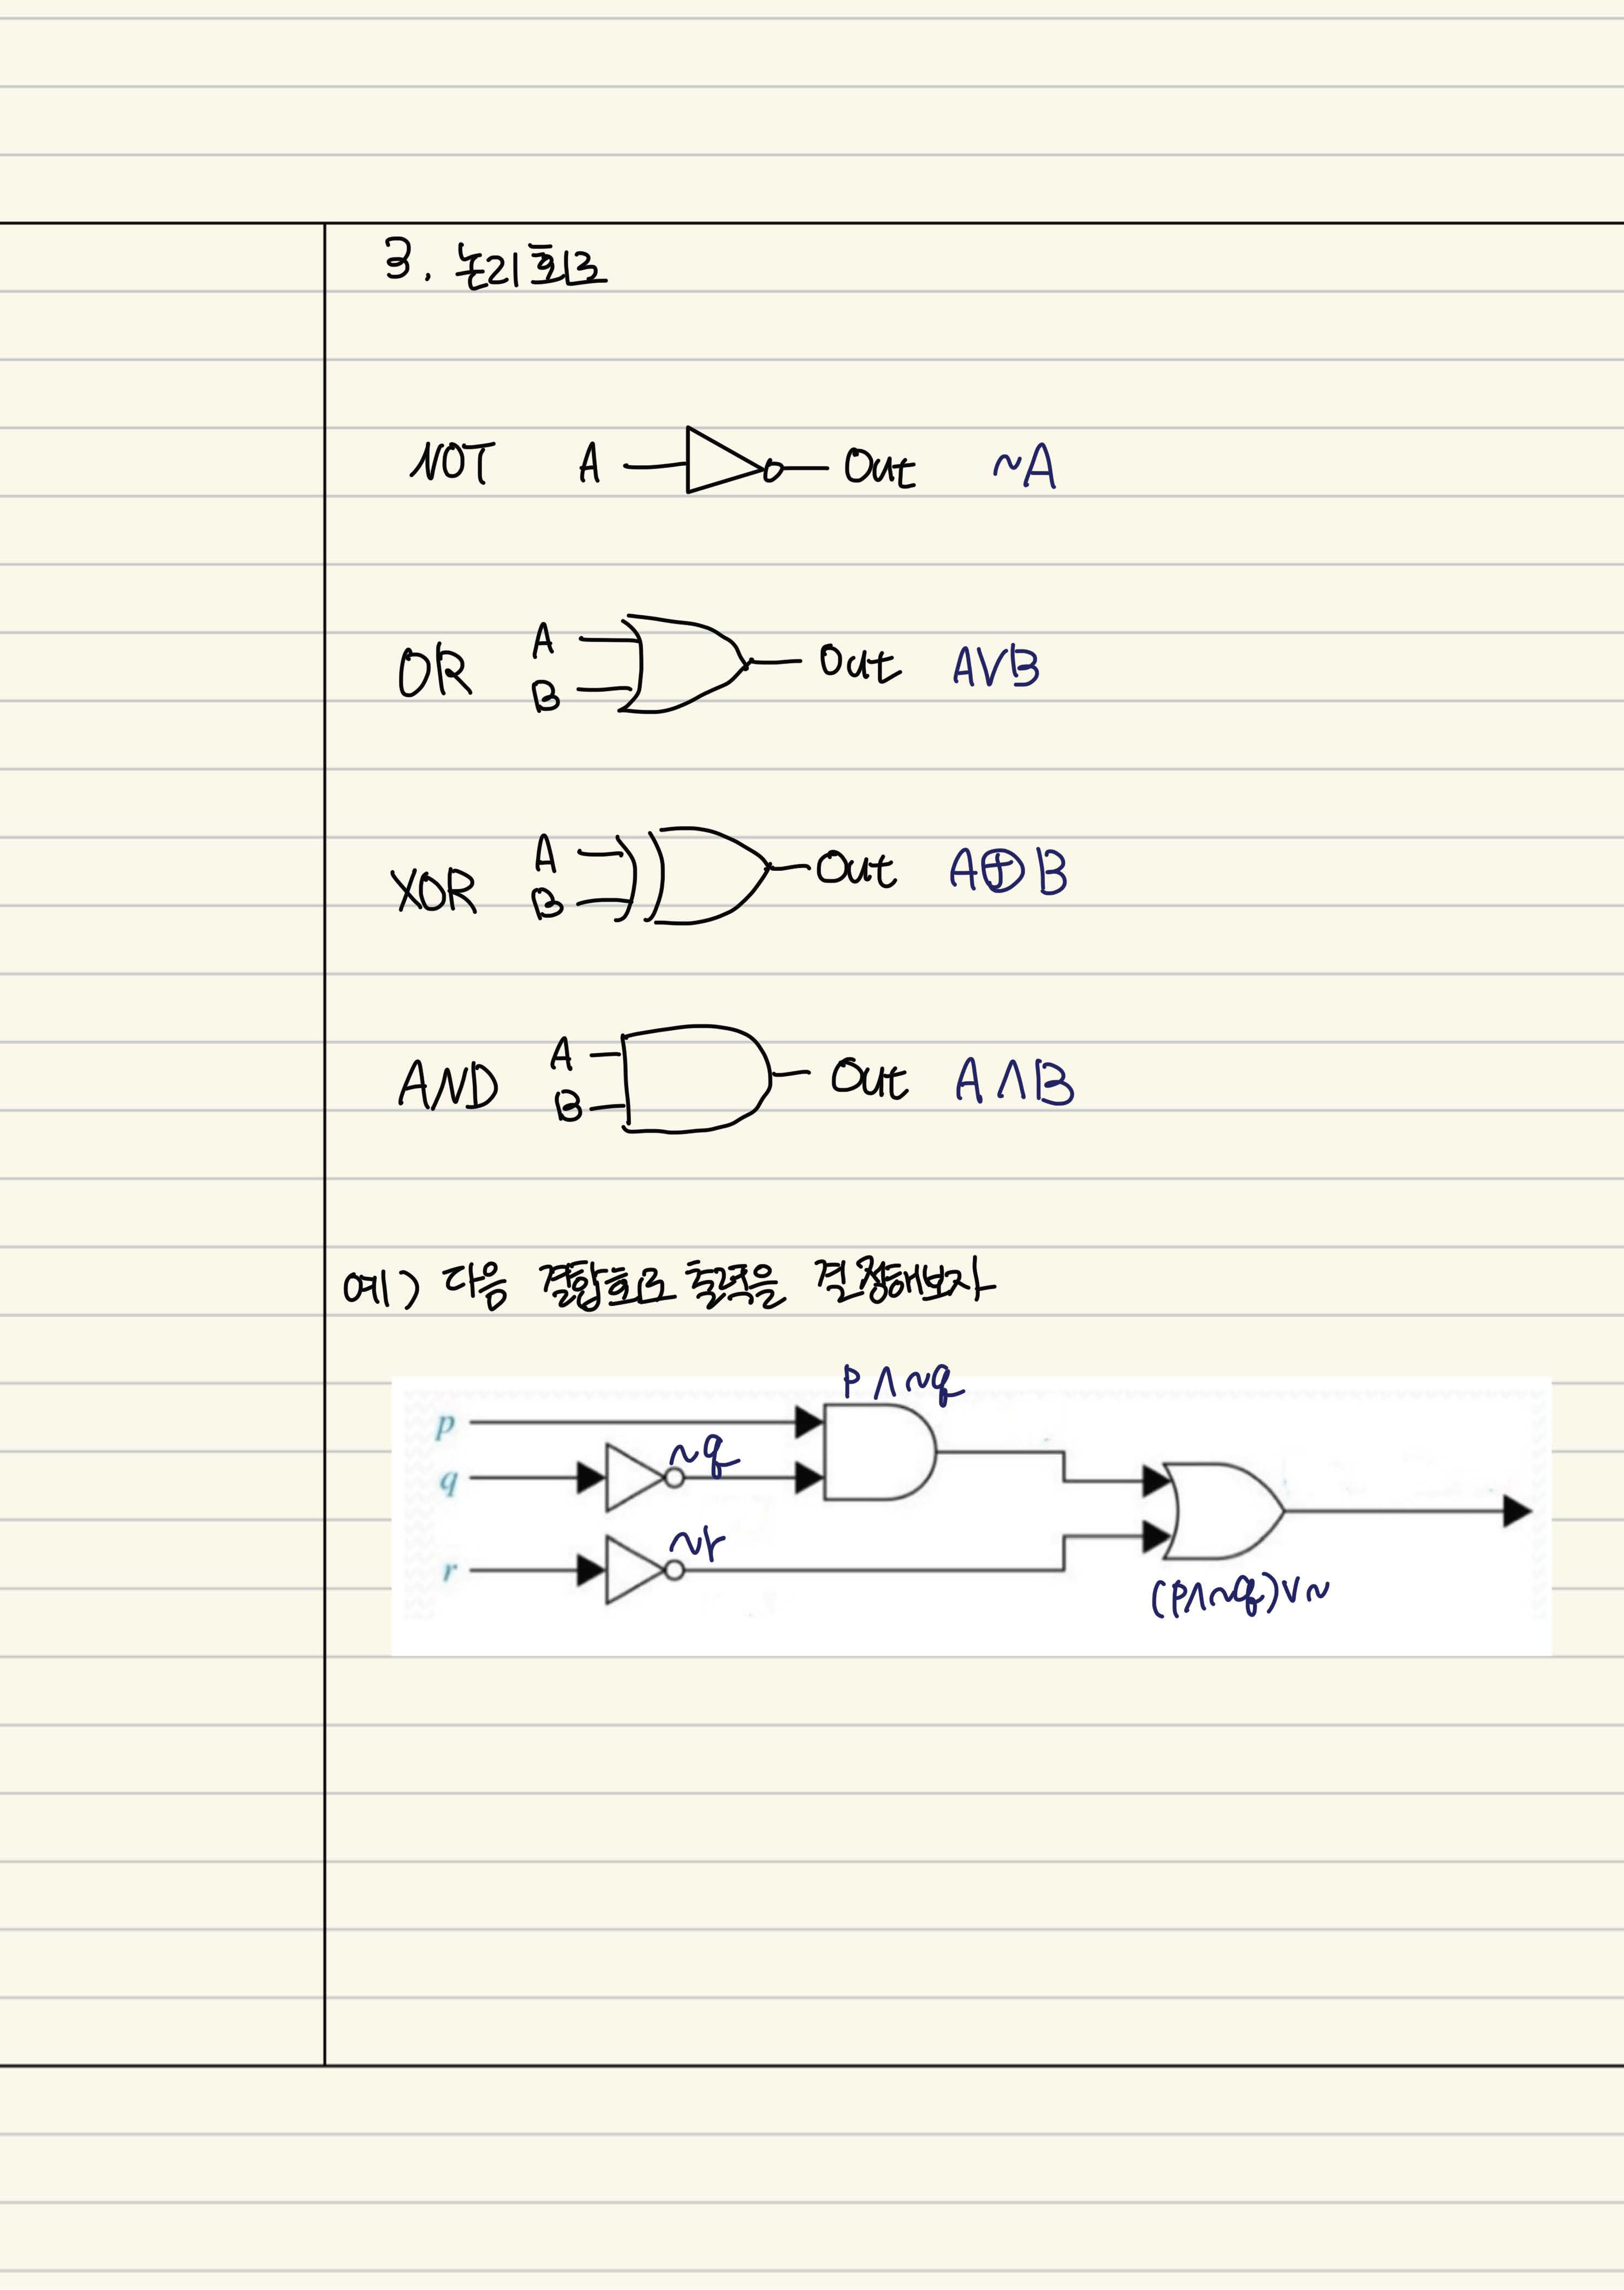 3. 논리회로
NOT A Out ~A
OR A B Out A∨B
XOR A B Out A⊕B
AND A B Out A∧B
예) 다음 조합회로 출력을 결정해보자
p∧~q
p
q ~q
r ~r
(p∧~q)∨~